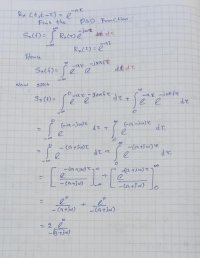 Rx (t,t-τ) = e^-aτ
Find the PSD Function
Sx(f) = ∫_-∞^∞ Rx(τ) e^-jωτ dτ
Rx(τ) = e^-aτ
Hence
Sx(f) = ∫_-∞^∞ e^-aτ e^-jωτ dτ
Sx(f) = ∫_-∞^0 e^-aτ e^-jωτ dτ + ∫_0^∞ e^-aτ e^-jωτ dτ
= ∫_-∞^0 e^(-a-jω)τ dτ + ∫_0^∞ e^(-a-jω)τ dτ
= ∫_-∞^0 e^-(a+jω)τ dτ + ∫_0^∞ e^-(a+jω)τ dτ
= [e^-(a+jω)τ / -(a+jω)]_-∞^0 + [e^-(a+jω)τ / -(a+jω)]_0^∞
= e^0 / -(a+jω) + e^0 / -(a+jω)
= 2 e^0 / -(a+jω)